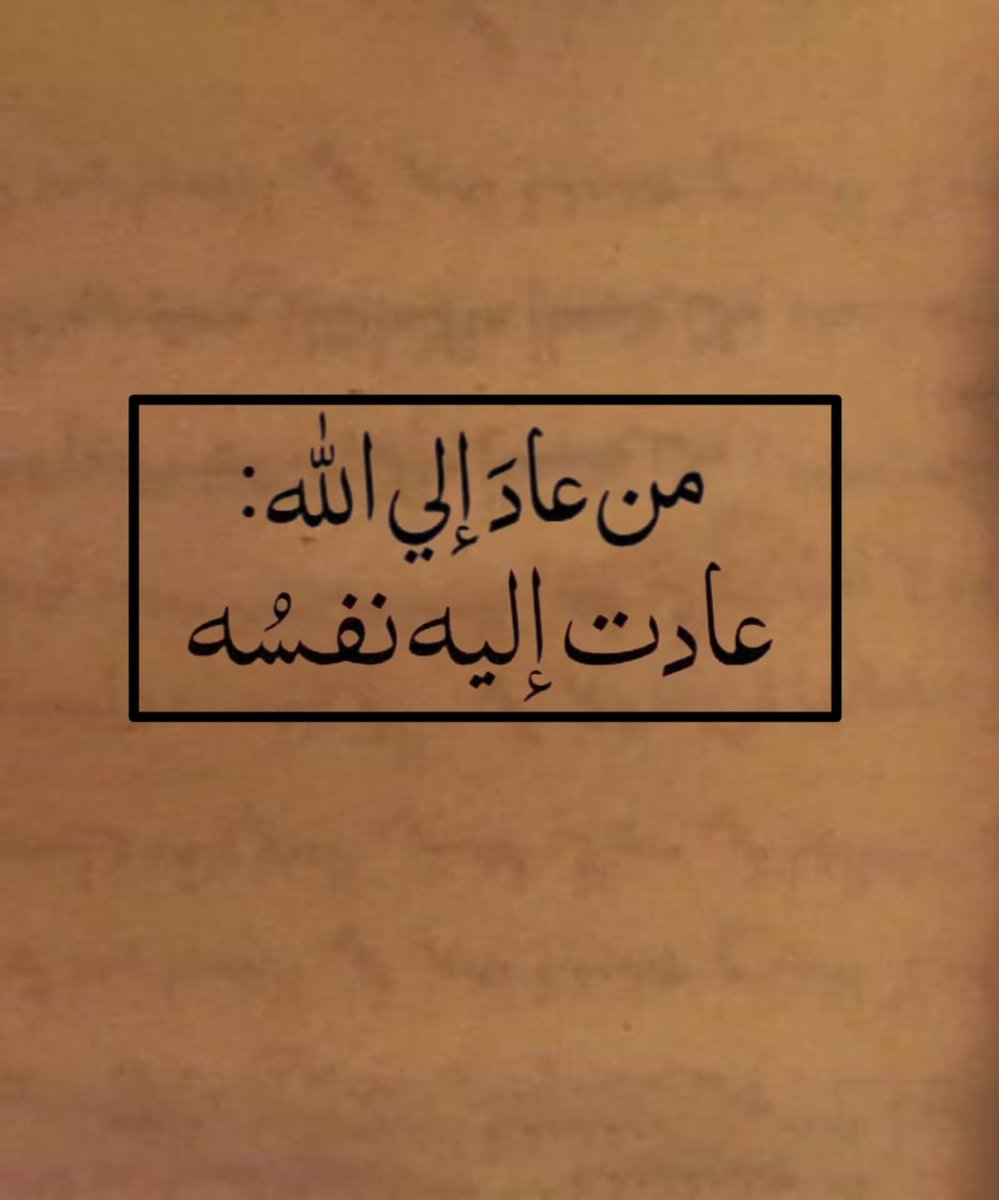 من عادَ إلي الله:
عادت إليه نفسُه